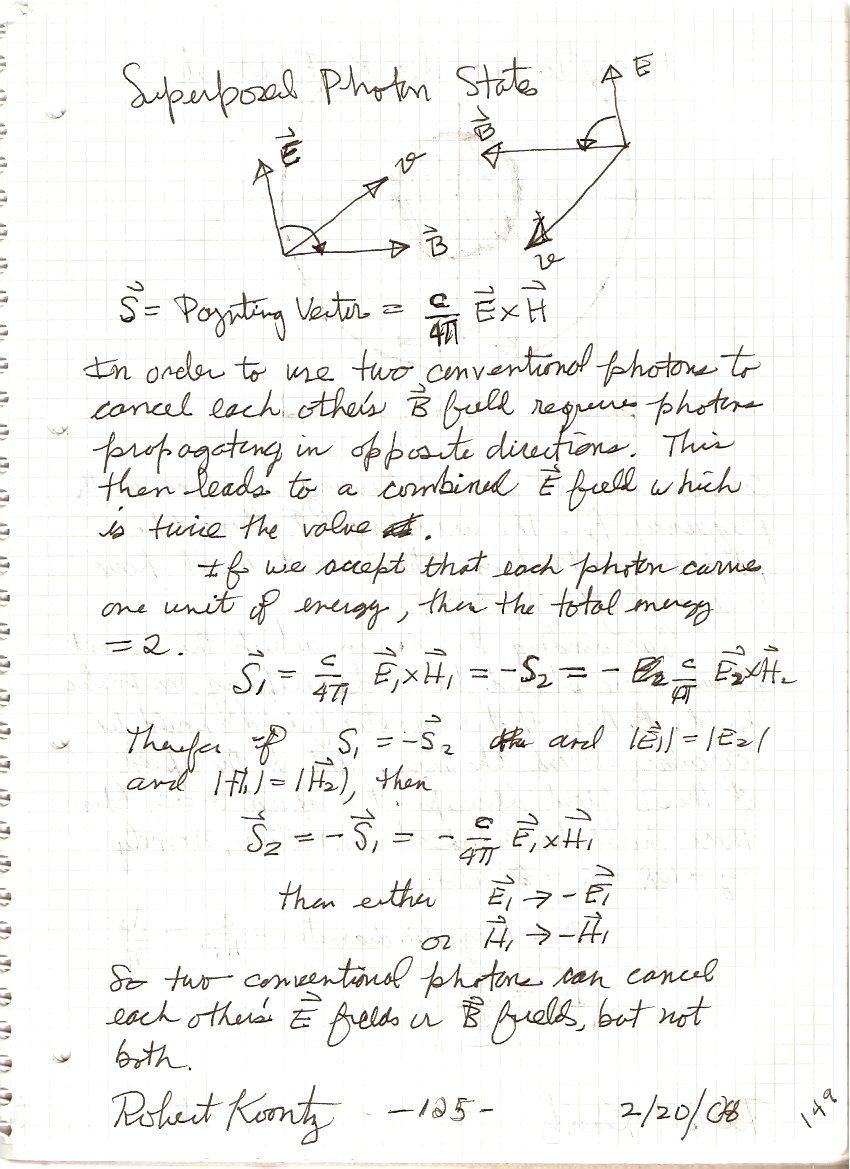 Superposed Photon States
E⃗ v B⃗
B⃗ E v
S⃗ = Poynting Vector = c/4π E⃗ × H⃗
In order to use two conventional photons to
cancel each other's B⃗ field requires photons
propagating in opposite directions. This
then leads to a combined E⃗ field which
is twice the value.
If we accept that each photon carries
one unit of energy, then the total energy
= 2.
S⃗₁ = c/4π E⃗₁ × H⃗₁ = -S₂ = - c/4π E⃗₂ × H⃗₂
Therefor if S₁ = -S⃗₂ and |E⃗₁| = |E₂|
and |H₁| = |H⃗₂|, then
S⃗₂ = -S⃗₁ = - c/4π E⃗₁ × H⃗₁
then either E⃗₁ → -E⃗₁
or H⃗₁ → -H⃗₁
So two conventional photons can cancel
each other's E⃗ fields or B⃗ fields, but not
both.
Robert Koontz -125- 2/20/08 149